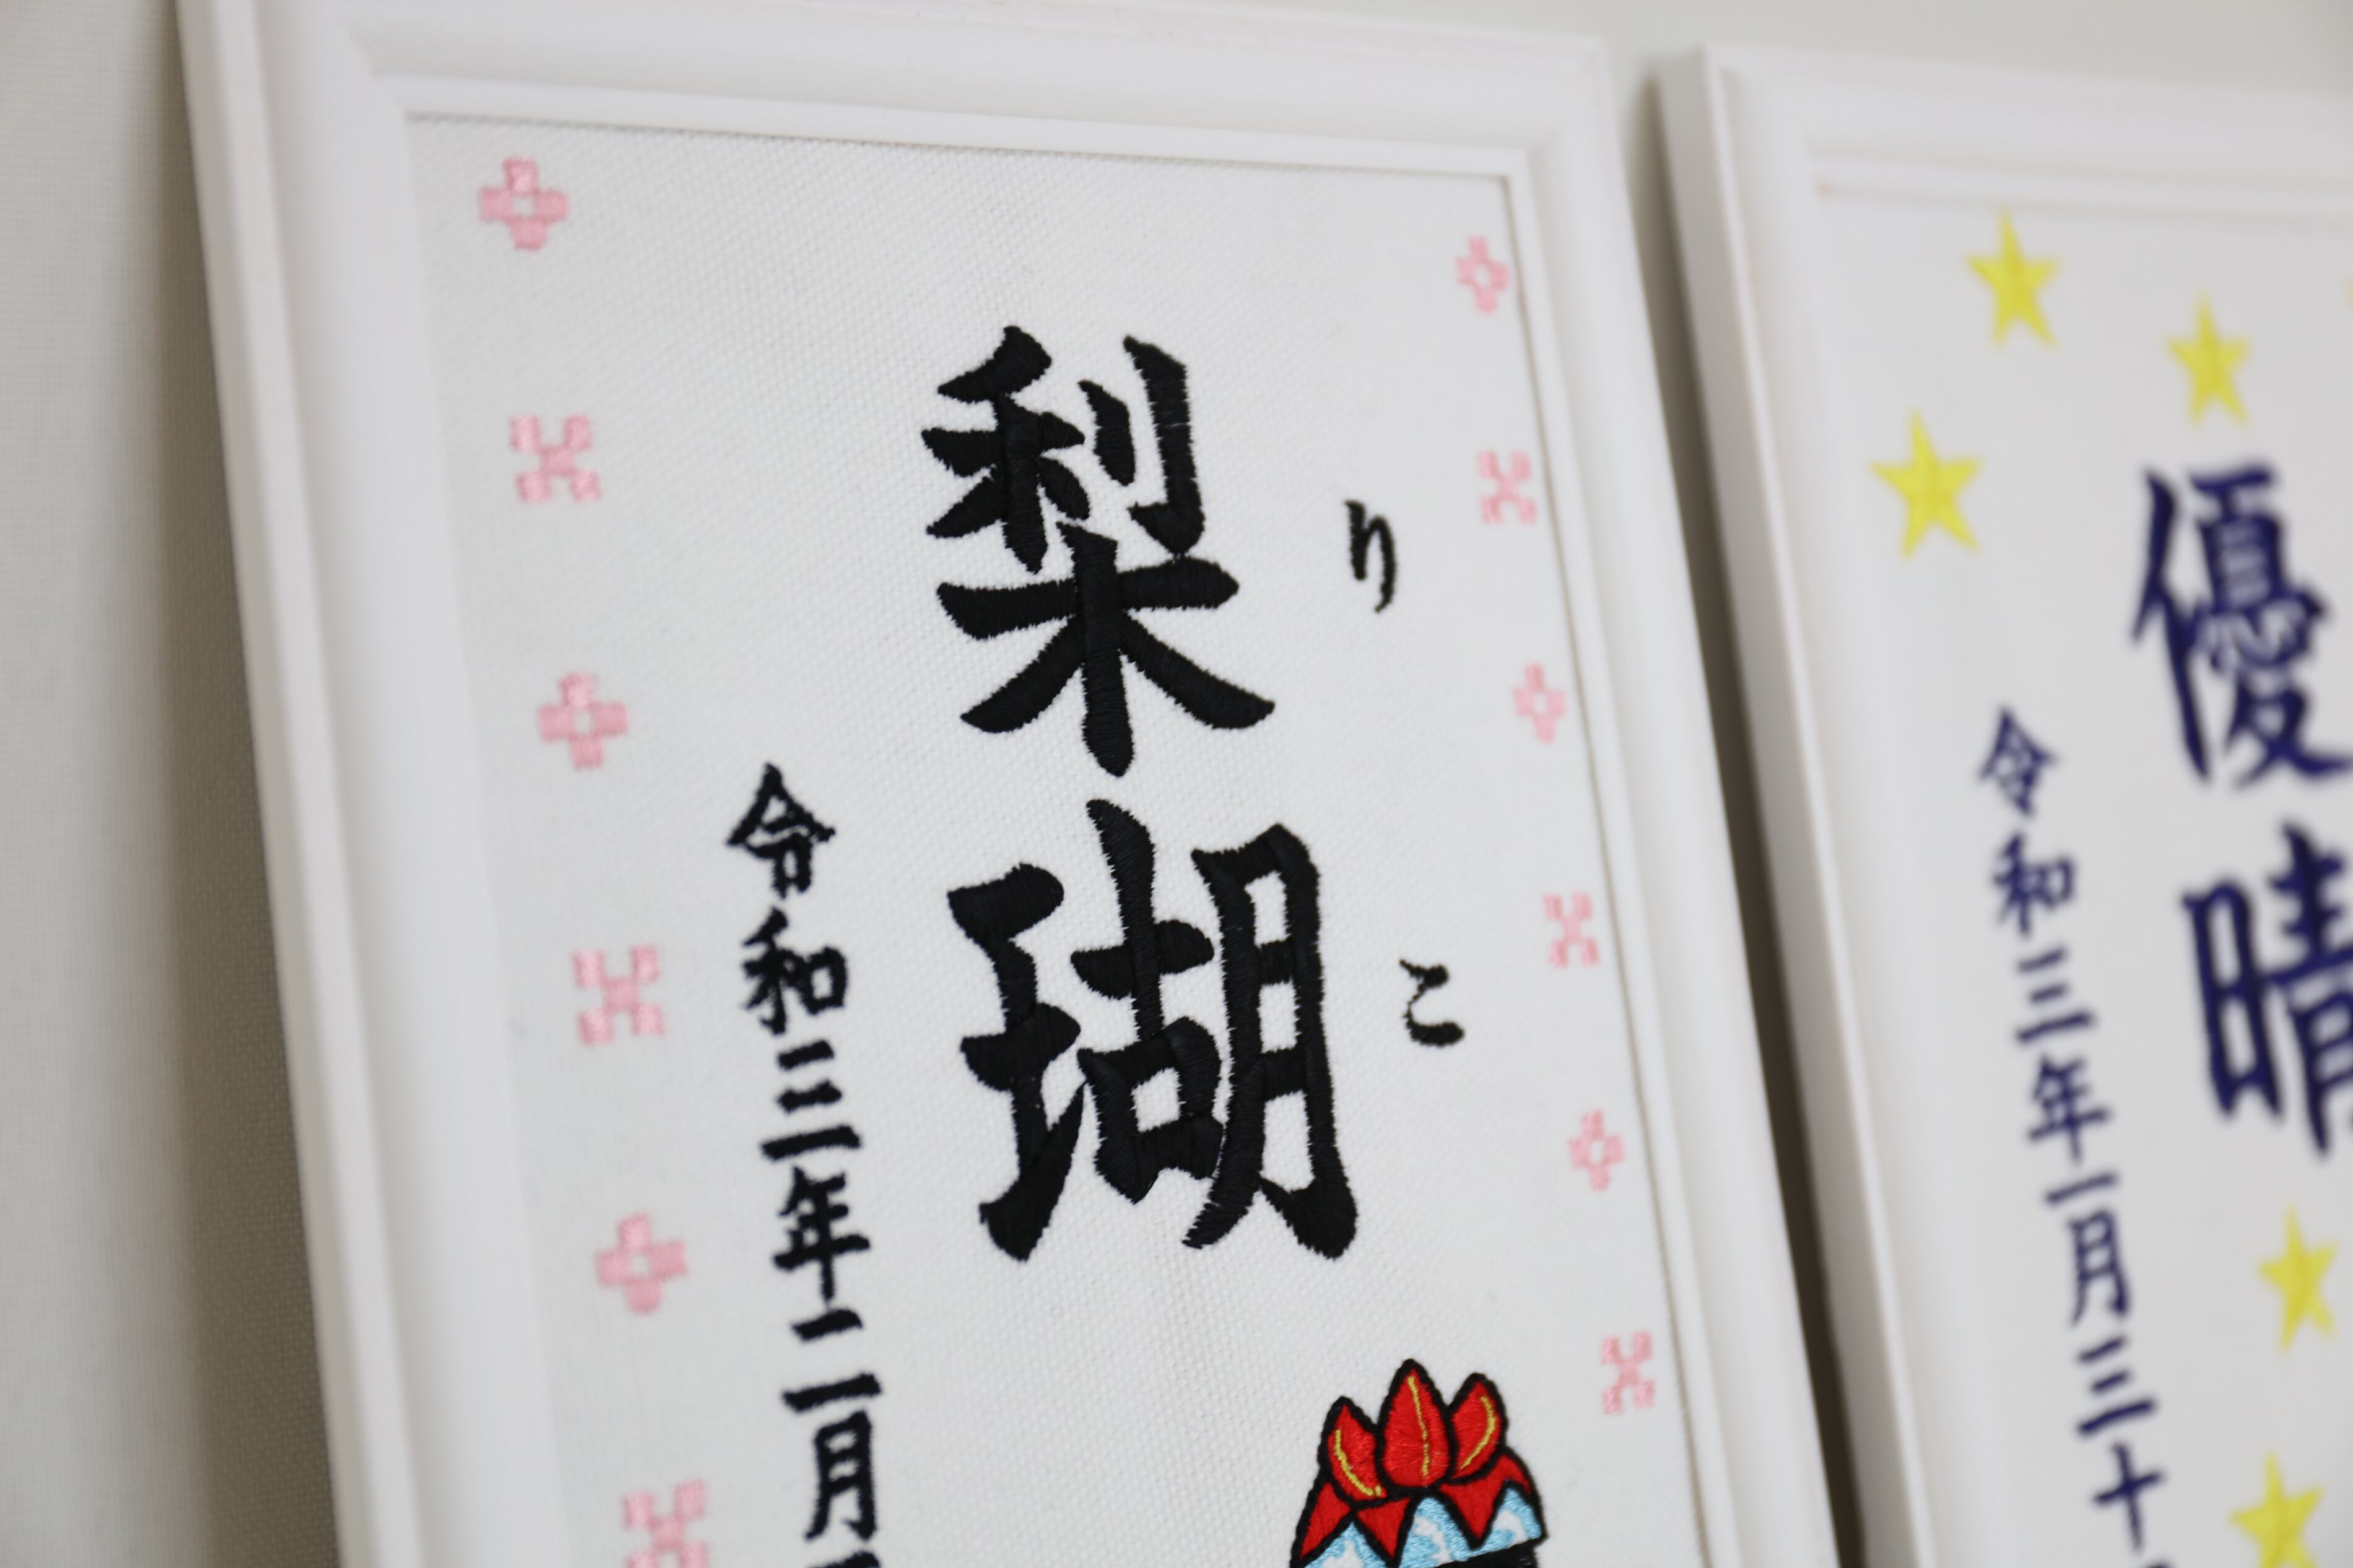 りこ
梨瑚
令和三年二月
優晴
令和三年一月三十